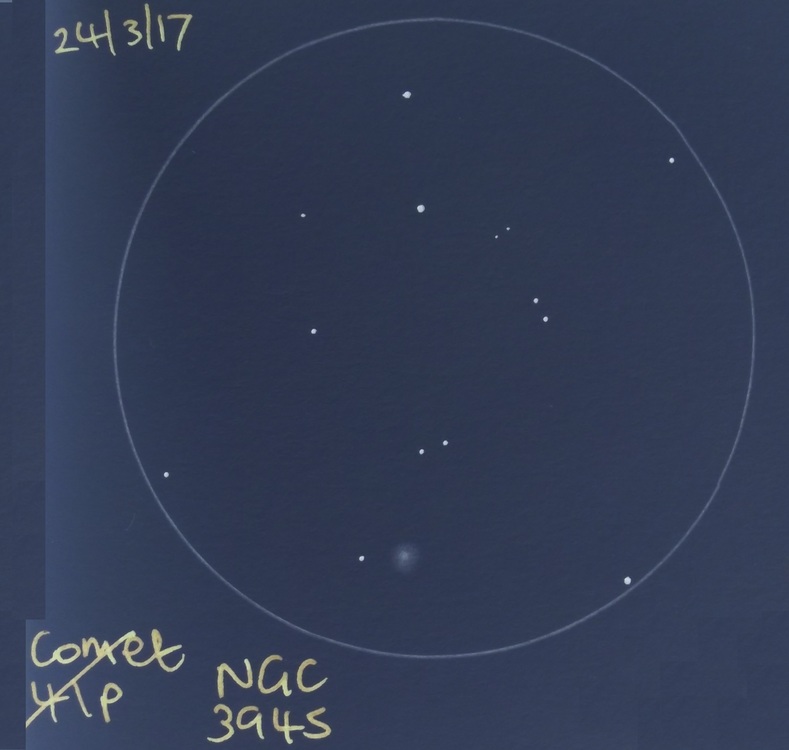 24/3/17
Comet
41P
NGC
3945